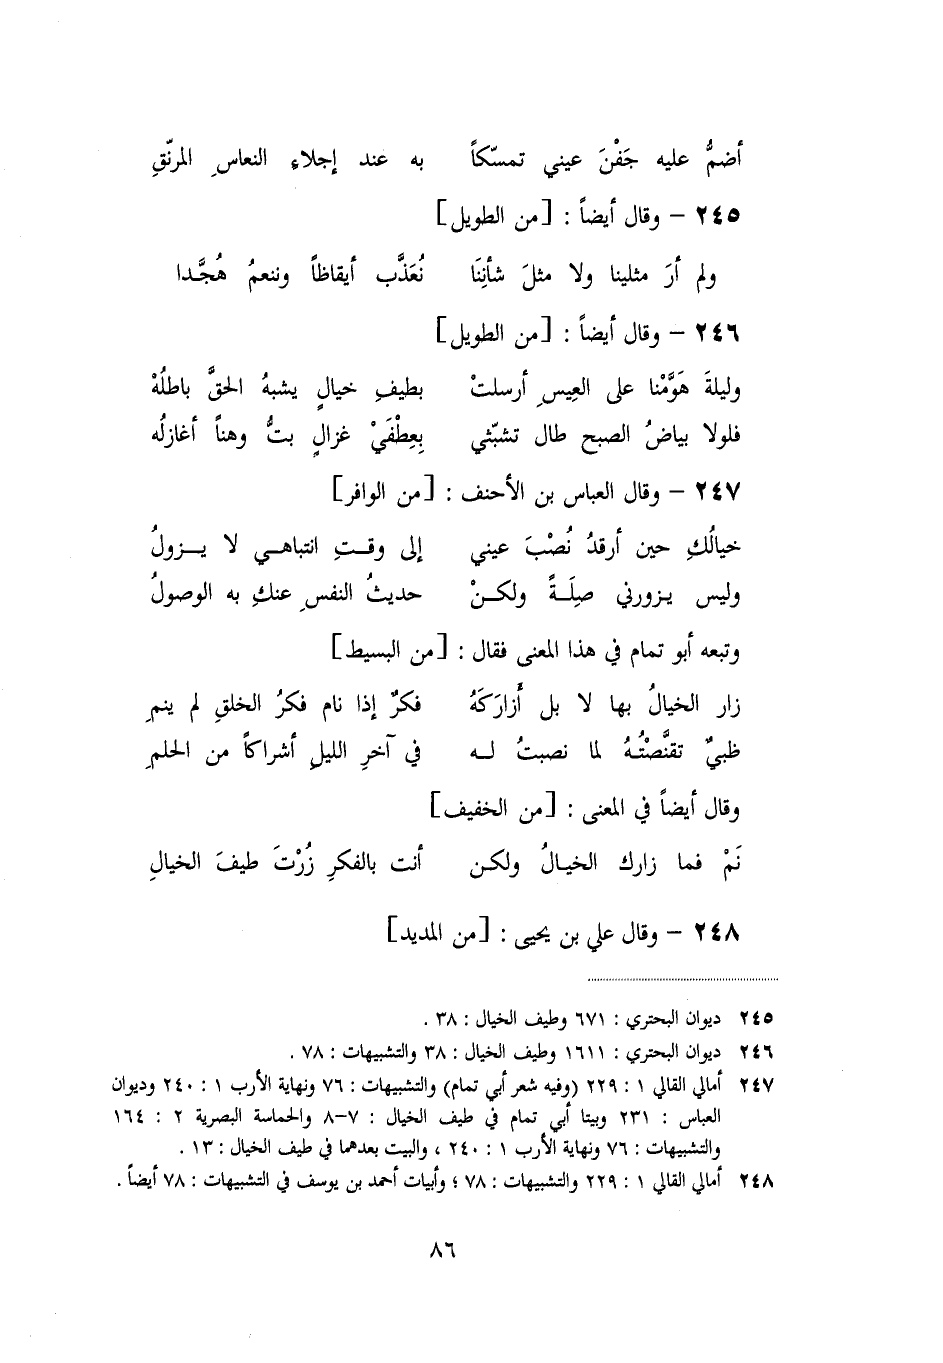 أضمُّ عليه جَفْنَ عيني تمسّكاً به عند إجلاءِ النعاسِ المرنّقِ
٢٤٥ – وقال أيضاً : [من الطويل]
ولم أرَ مثلينا ولا مثلَ شأنِنَا نُعَذَّب أيقاظاً وننعمُ هُجَّدا
٢٤٦ – وقال أيضاً : [من الطويل]
وليلةَ هَوَّمْنا على العِيسِ أرسلتْ بطيفِ خيالٍ يشبهُ الحقَّ باطلُهْ
فلولا بياضُ الصبح طال تشبّثي بِعِطْفَيْ غزالٍ بتُّ وهناً أغازلُه
٢٤٧ – وقال العباس بن الأحنف : [من الوافر]
خيالُكِ حين أرقدُ نُصْبَ عيني إلى وقتِ انتباهي لا يزولُ
وليس يزورني صِلَةً ولكنْ حديثُ النفسِ عنكِ به الوصولُ
وتبعه أبو تمام في هذا المعنى فقال : [من البسيط]
زار الخيالُ بها لا بل أزارَكَهُ فكرٌ إذا نام فكرُ الخلقِ لم ينمِ
ظبيٌ تقنَّصْتُهُ لما نصبتُ له في آخرِ الليلِ أشراكاً من الحلمِ
وقال أيضاً في المعنى : [من الخفيف]
نَمْ فما زارك الخيالُ ولكن أنت بالفكرِ زُرْتَ طيفَ الخيالِ
٢٤٨ – وقال علي بن يحيى : [من المديد]
٢٤٥ ديوان البحتري : ٦٧١ وطيف الخيال : ٣٨ .
٢٤٦ ديوان البحتري : ١٦١١ وطيف الخيال : ٣٨ والتشبيهات : ٧٨ .
٢٤٧ أمالي القالي ١ : ٢٢٩ (وفيه شعر أبي تمام) والتشبيهات : ٧٦ ونهاية الأرب ١ : ٢٤٠ وديوان
العباس : ٢٣١ وبيتا أبي تمام في طيف الخيال : ٧–٨ والحماسة البصرية ٢ : ١٦٤
والتشبيهات : ٧٦ ونهاية الأرب ١ : ٢٤٠ ، والبيت بعدهما في طيف الخيال : ١٣ .
٢٤٨ أمالي القالي ١ : ٢٢٩ والتشبيهات : ٧٨ ؛ وأبيات أحمد بن يوسف في التشبيهات : ٧٨ أيضاً .
٨٦